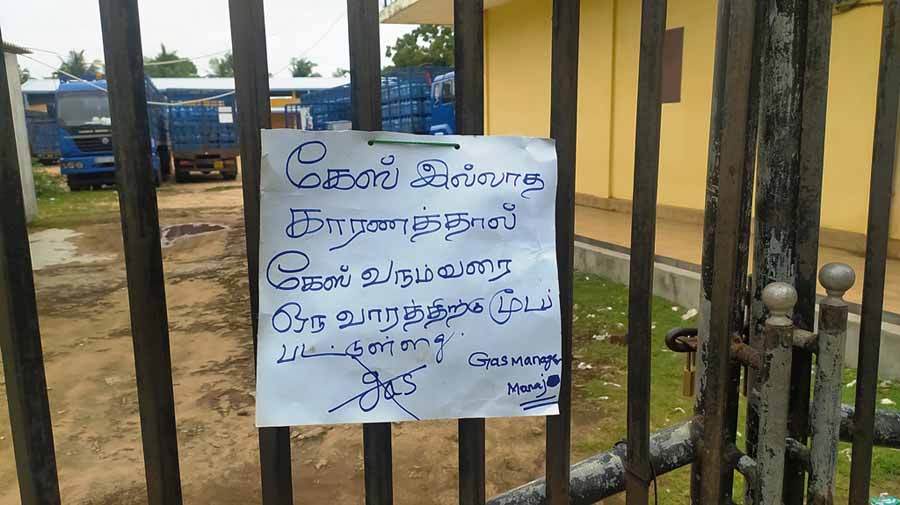 கேஸ் இல்லாத
காரணத்தால்
கேஸ் வரும்வரை
ஒரு வாரத்திற்கு மூடப்
பட்டுள்ளது
Gas Manager
Manaj
gas